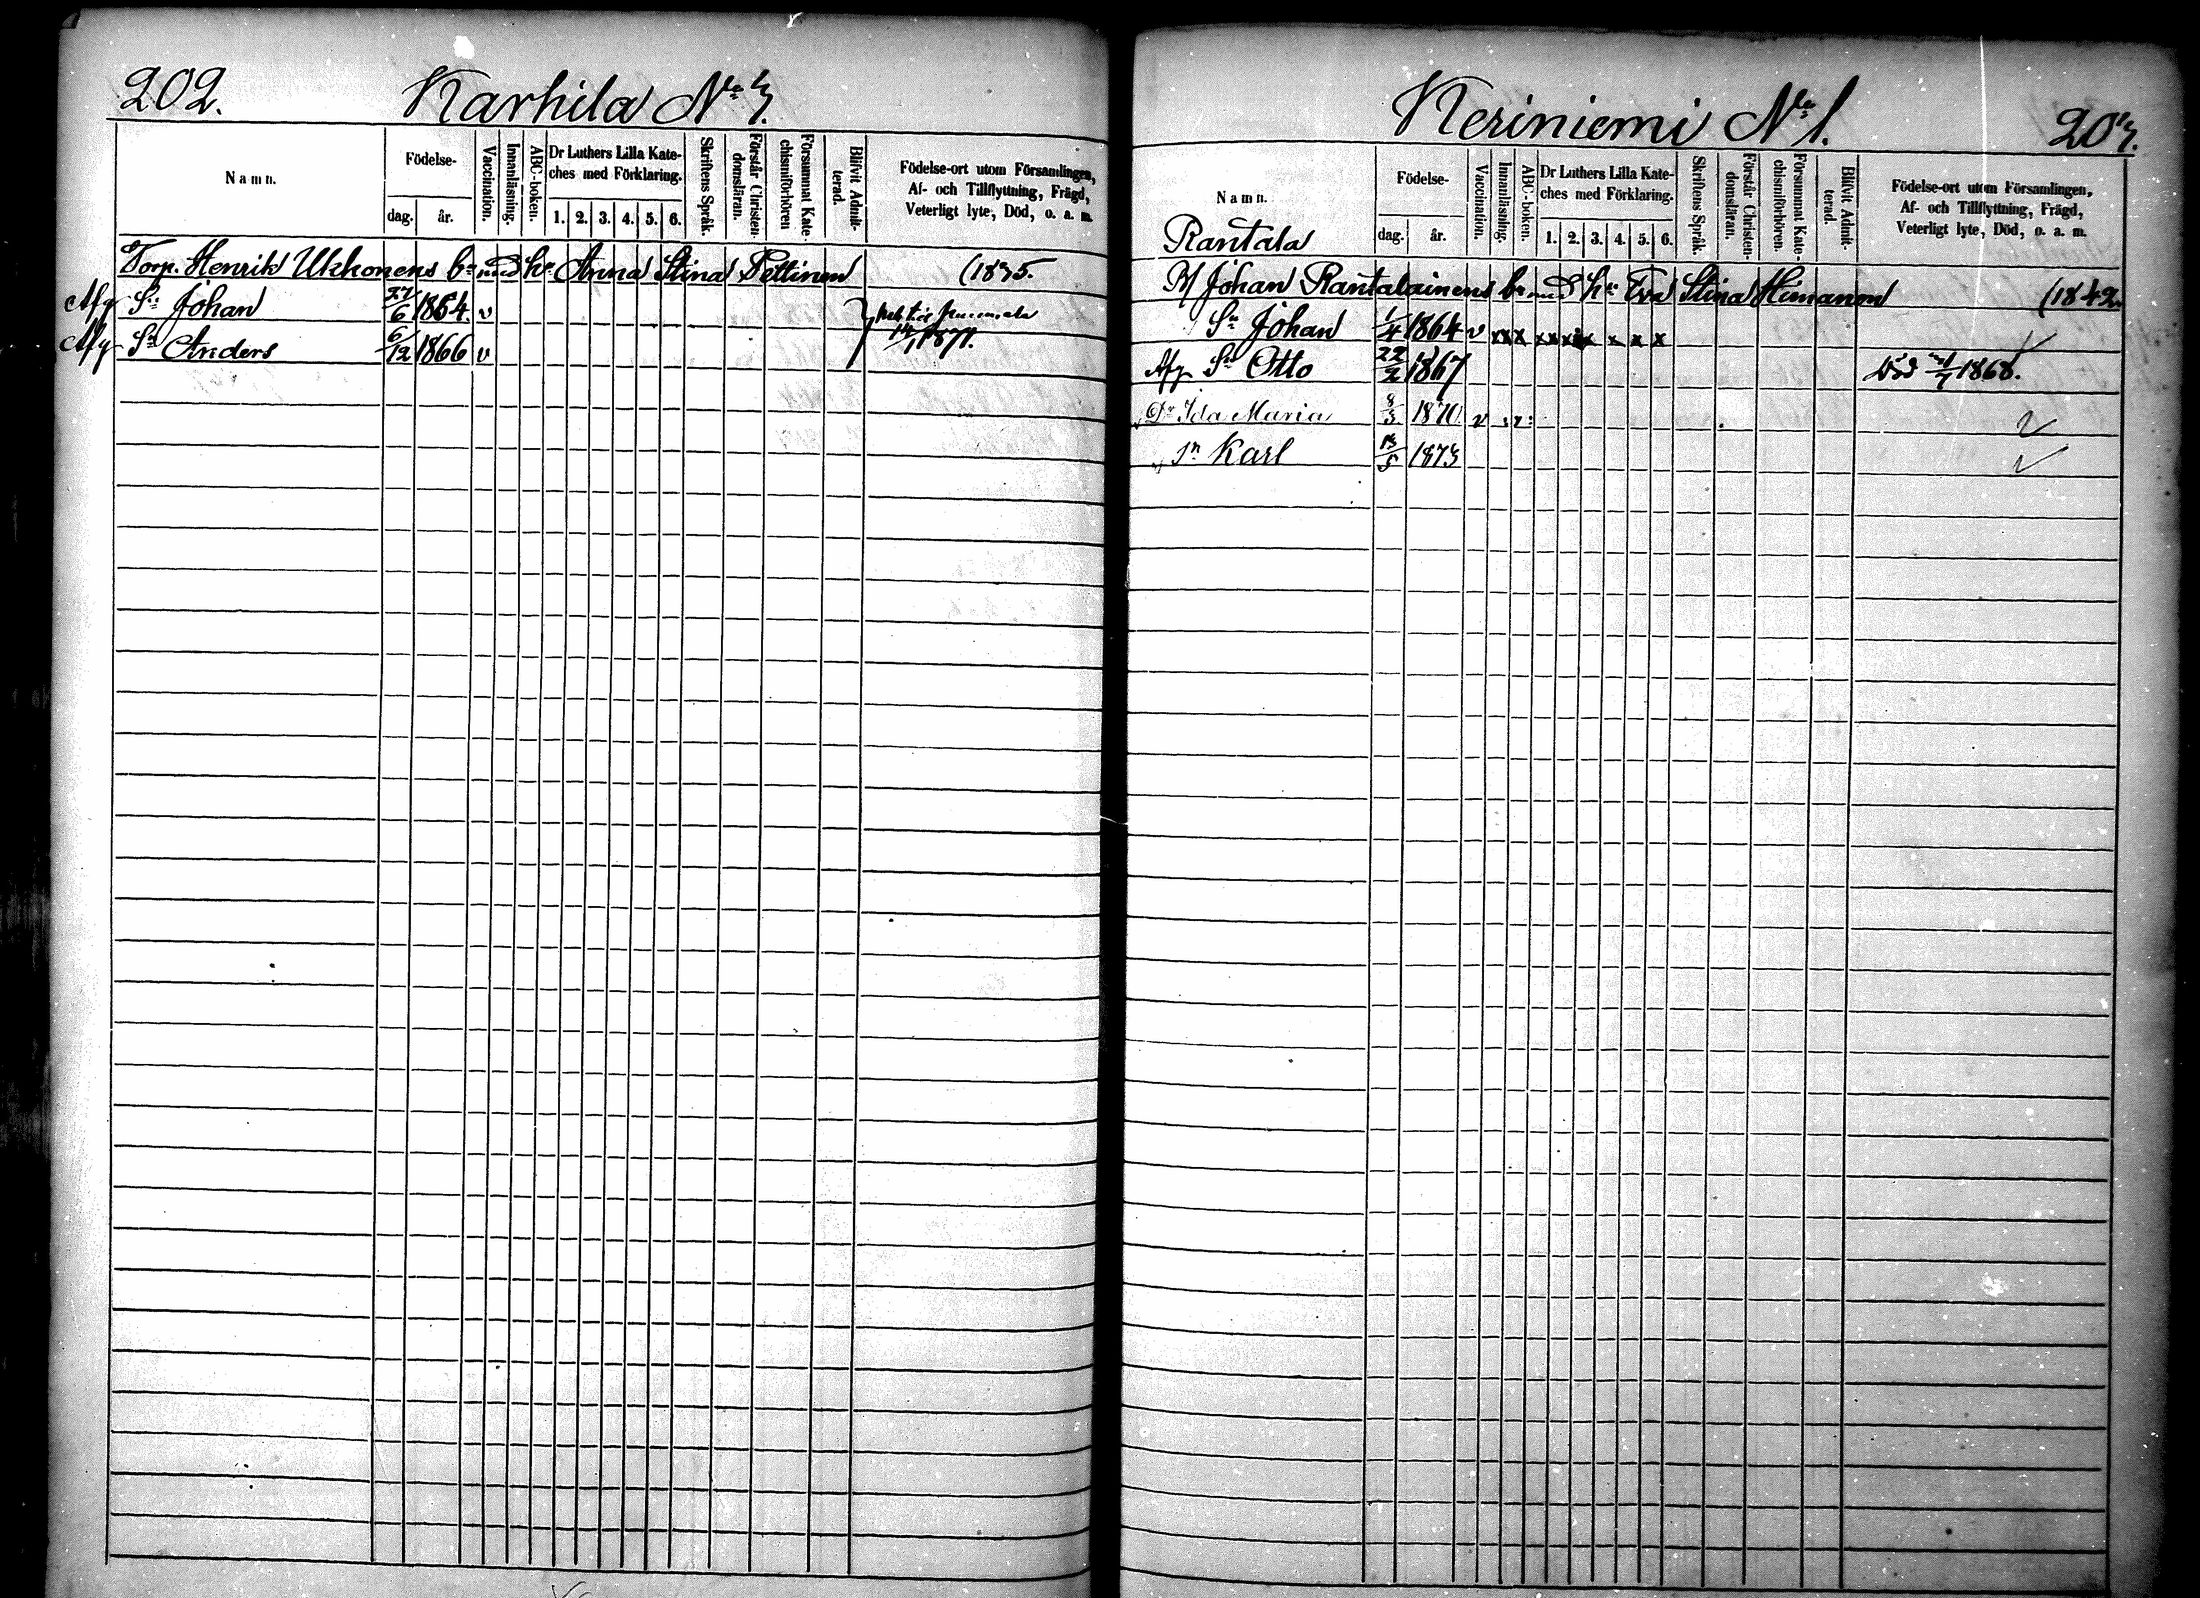 202.
Karhila No 3.
Namn.
Födelse-
dag.
år.
Vaccination.
Innanläsning.
ABC-boken.
Dr Luthers Lilla Kate-
ches med Förklaring.
1. 2. 3. 4. 5. 6.
Skriftens Språk.
Förstår Christen-
domsläran.
Försummat Kate-
chismiförhören
Blifvit Admit-
terad.
Födelse-ort utom Församlingen,
Af- och Tillflyttning, Frägd,
Veterligt lyte, Död, o. a. m.
Torp. Henrik Ukkonens bn med hu Anna Stina Pettinen (1835.
Afg Sn Johan 27/6 1864. v
Afg Sn Anders 6/12 1866 v
1871.
Keriniemi No 1.
203.
Namn.
Födelse-
dag.
år.
Vaccination.
Innanläsning.
ABC-boken.
Dr Luthers Lilla Kate-
ches med Förklaring.
1. 2. 3. 4. 5. 6.
Skriftens Språk.
Förstår Christen-
domsläran.
Försummat Kate-
chismiförhören.
Blifvit Admit-
terad.
Födelse-ort utom Församlingen,
Af- och Tillflyttning, Frägd,
Veterligt lyte, Död, o. a. m.
Rantala
Johan Rantalainens bn med hu Eva Stina Himanen (1842.
Sn Johan 1/4 1864 v x x x x x x x x x
Afg Sn Otto 22/2 1867 Död 1868.
Dr Ida Maria 8/3 1870. v
Sn Karl 13/5 1873